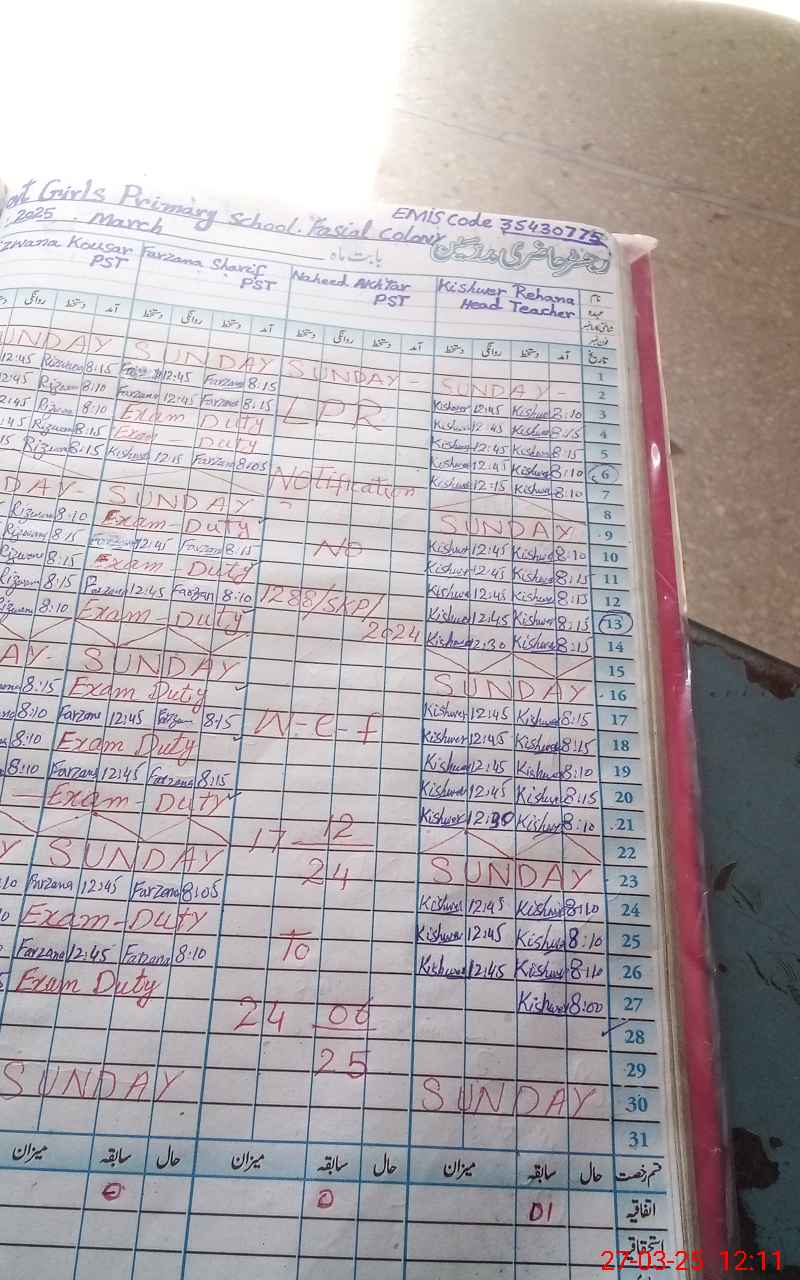 Girls Primary School. Fasial Colony
EMIS Code 35430775
2025 . March
بابت ماہ
رجسٹر حاضری مدرسین
Kousar Farzana Sharif Naheed Akhtar Kishwer Rehana نام
PST PST PST Head Teacher عہدہ
روانگی دستخط روانگی دستخط آمد دستخط روانگی دستخط آمد دستخط روانگی دستخط آمد تاریخ
1
SUNDAY SUNDAY - SUNDAY - 2
12:45 Rizwana 8:15 12:45 Farzana 8:15 Kishwer 12:45 Kishwer 8:10 3
Rizwan 8:10 Farzana 12:45 Farzana 8:15 LPR Kishwer 12:45 Kishwer 8:15 4
Rizwan 8:10 Exam Duty Kishwer 12:45 Kishwer 8:15 5
Rizwan 8:15 Exam Duty Kishwer 12:45 Kishwer 8:10 6
Rizwan 8:15 Kishwer 12:15 Farzana 8:05 Notification Kishwer 12:15 Kishwer 8:10 7
8
DAY - SUNDAY - SUNDAY 9
Rizwan 8:10 Exam-Duty No Kishwer 12:45 Kishwer 8:10 10
Rizwan 8:15 12:45 Farzana 8:15 Kishwer 12:45 Kishwer 8:15 11
Rizwan 8:15 Exam-Duty Kishwer 12:45 Kishwer 8:15 12
Rizwan 8:15 Farzana 12:45 Farzana 8:10 1288/SKP/ Kishwer 12:45 Kishwer 8:15 13
8:10 Exam-Duty 2024 Kishwer 12:30 Kishwer 8:15 14
15
AY- SUNDAY SUNDAY 16
8:15 Exam Duty Kishwer 12:45 Kishwer 8:15 17
8:10 Farzana 12:45 Farzana 8:15 W-e-f Kishwer 12:45 Kishwer 8:15 18
8:10 Exam Duty Kishwer 12:45 Kishwer 8:10 19
8:10 Farzana 12:45 Farzana 8:15 Kishwer 12:45 Kishwer 8:15 20
Exam-Duty Kishwer 12:30 Kishwer 8:10 21
17 12 22
Y SUNDAY 24 SUNDAY 23
Farzana 12:45 Farzana 8:05 Kishwer 12:45 Kishwer 8:10 24
Exam-Duty To Kishwer 12:45 Kishwer 8:10 25
Farzana 12:45 Farzana 8:10 Kishwer 12:45 Kishwer 8:10 26
Exam Duty Kishwer 8:00 27
24 06 28
25 29
SUNDAY SUNDAY 30
31
میزان سابقہ حال میزان سابقہ حال میزان سابقہ حال قسم رخصت
0 0 01 اتفاقیہ
استحقاقیہ
27-03-25 12:11